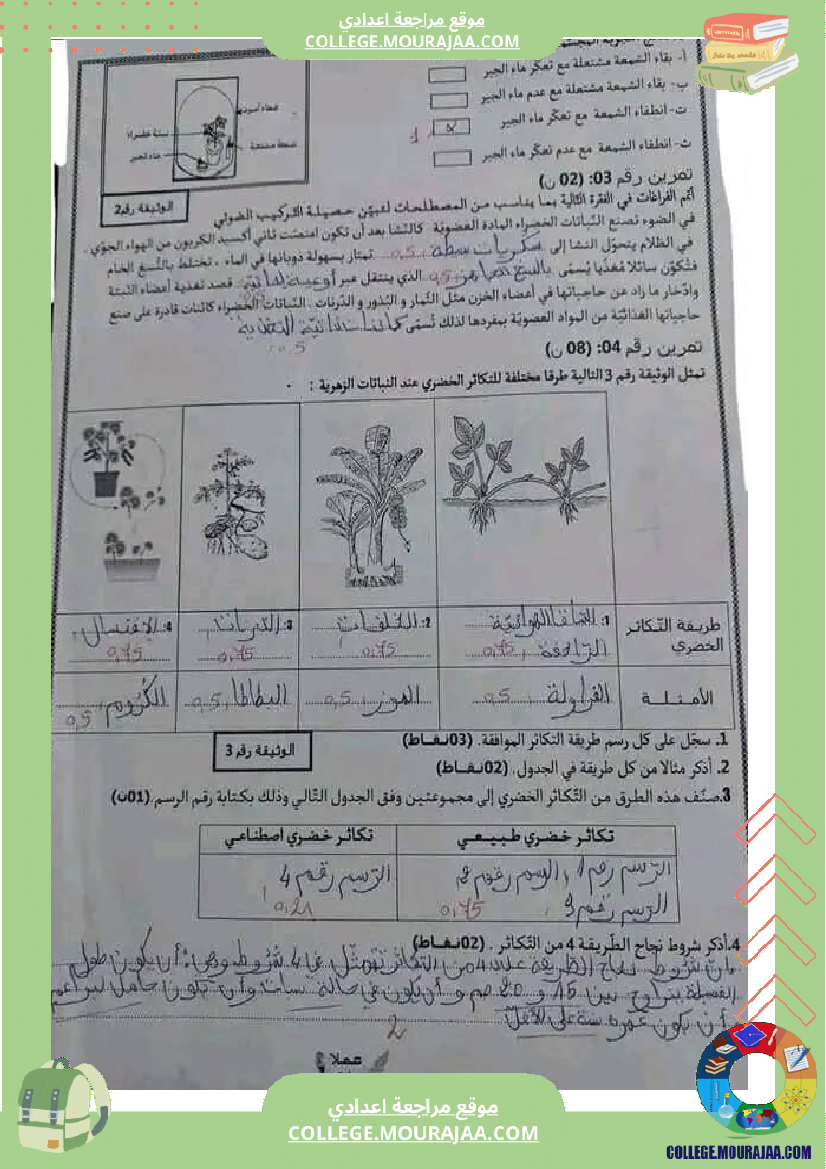 موقع مراجعة اعدادي
COLLEGE.MOURAJAA.COM
أ- بقاء الشمعة مشتعلة مع تعكّر ماء الجير
ب- بقاء الشمعة مشتعلة مع عدم تعكّر ماء الجير
ت- انطفاء الشمعة مع تعكّر ماء الجير X 1
ث- انطفاء الشمعة مع عدم تعكّر ماء الجير
نبتة خضراء
شمعة مشتعلة
ماء الجير
الوثيقة رقم2
تمرين رقم 03: (02 ن)
أتمّ الفراغات في الفقرة التالية بما يناسب من المصطلحات لتبيّن حصيلة التركيب الضوئي
في الضوء تصنع النّباتات الخضراء المادة العضويّة كالنّشا بعد أن تكون امتصّت ثاني أكسيد الكربون من الهواء الجوّي.
في الظلام يتحوّل النشا إلى سكريات بسيطة 0,5 تمتاز بسهولة ذوبانها في الماء، تختلط بالنّسغ الخام
فتكوّن سائلا مُغذّيا يُسمّى بالنسغ 0,5 الذي ينتقل عبر أوعية قصد تغذية أعضاء النّبتة
وادّخار ما زاد عن حاجياتها في أعضاء الخزن مثل الثّمار و البُذور و الدّرنات. النّباتات الخضراء كائنات قادرة على صنع
حاجياتها الغذائيّة من المواد العضويّة بمفردها لذلك تُسمّى كائنات ذاتيّة التغذية
0,5
تمرين رقم 04: (08 ن)
تمثل الوثيقة رقم 3 التالية طرقا مختلفة للتكاثر الخضري عند النباتات الزهرية :
طريقة التّكاثر الخضري
1: الساق الهوائيّة الزّاحفة 0,75
2: الخلفات 0,75
3: الدرنات 0,75
4: الافتسال 0,75
الأمثلة
الفراولة 0,5
الموز 0,5
البطاطا 0,5
الكروم 0,5
1. سجّل على كل رسم طريقة التكاثر الموافقة. (03نقاط)
الوثيقة رقم 3
2. أذكر مثالا من كل طريقة في الجدول. (02نقاط)
3.صنّف هذه الطرق من التّكاثر الخضري إلى مجموعتين وفق الجدول التّالي وذلك بكتابة رقم الرسم.(01ن)
تكاثر خضري طبيعي
تكاثر خضري اصطناعي
الرّسم رقم 1، الرسم رقم 2
الرّسم رقم 4
الرسم رقم 3 0,75
0,21
4.أذكر شروط نجاح الطّريقة 4 من التّكاثر . (02نقاط)
إن شروط نجاح الطريقة عدد 4 من التكاثر تتمثّل في 4 شروط وهي: أن يكون طول
الفسيلة يتراوح بين 15 و 20 صم و أن يكون في حالة سبات وأن تكون حامل لبراعم
و أن يكون عمره سنة على الأقل
2
عملا
موقع مراجعة اعدادي
COLLEGE.MOURAJAA.COM
COLLEGE.MOURAJAA.COM